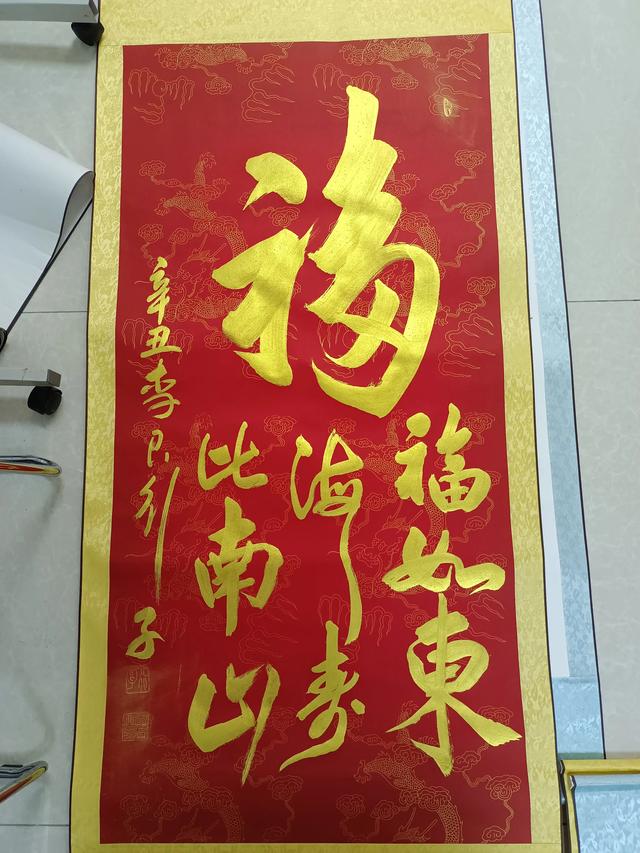 福
福如東
海寿
比南山
辛丑李
子